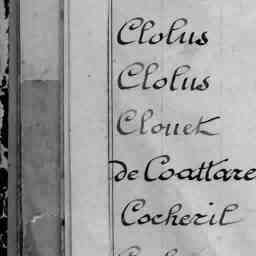 Clolus
Clolus
Clouet
de Coattare
Cocheril